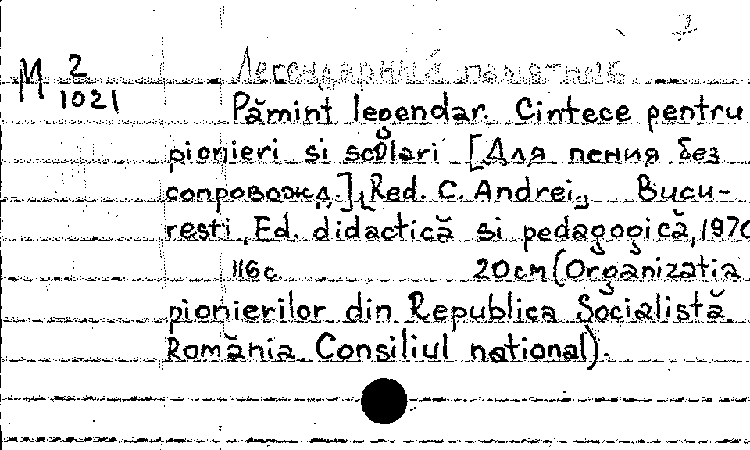 Легендарный памятник
М 2
1021
Pămint legendar. Cintece pentru
pionieri si scolari [Для пения без
сопровожд.] Red. C. Andrei. Bucu-
resti, Ed. didactică si pedagogică, 1970
116 с. 20 см (Organizatia
pionierilor din Republica Socialistă
România. Consiliul national).